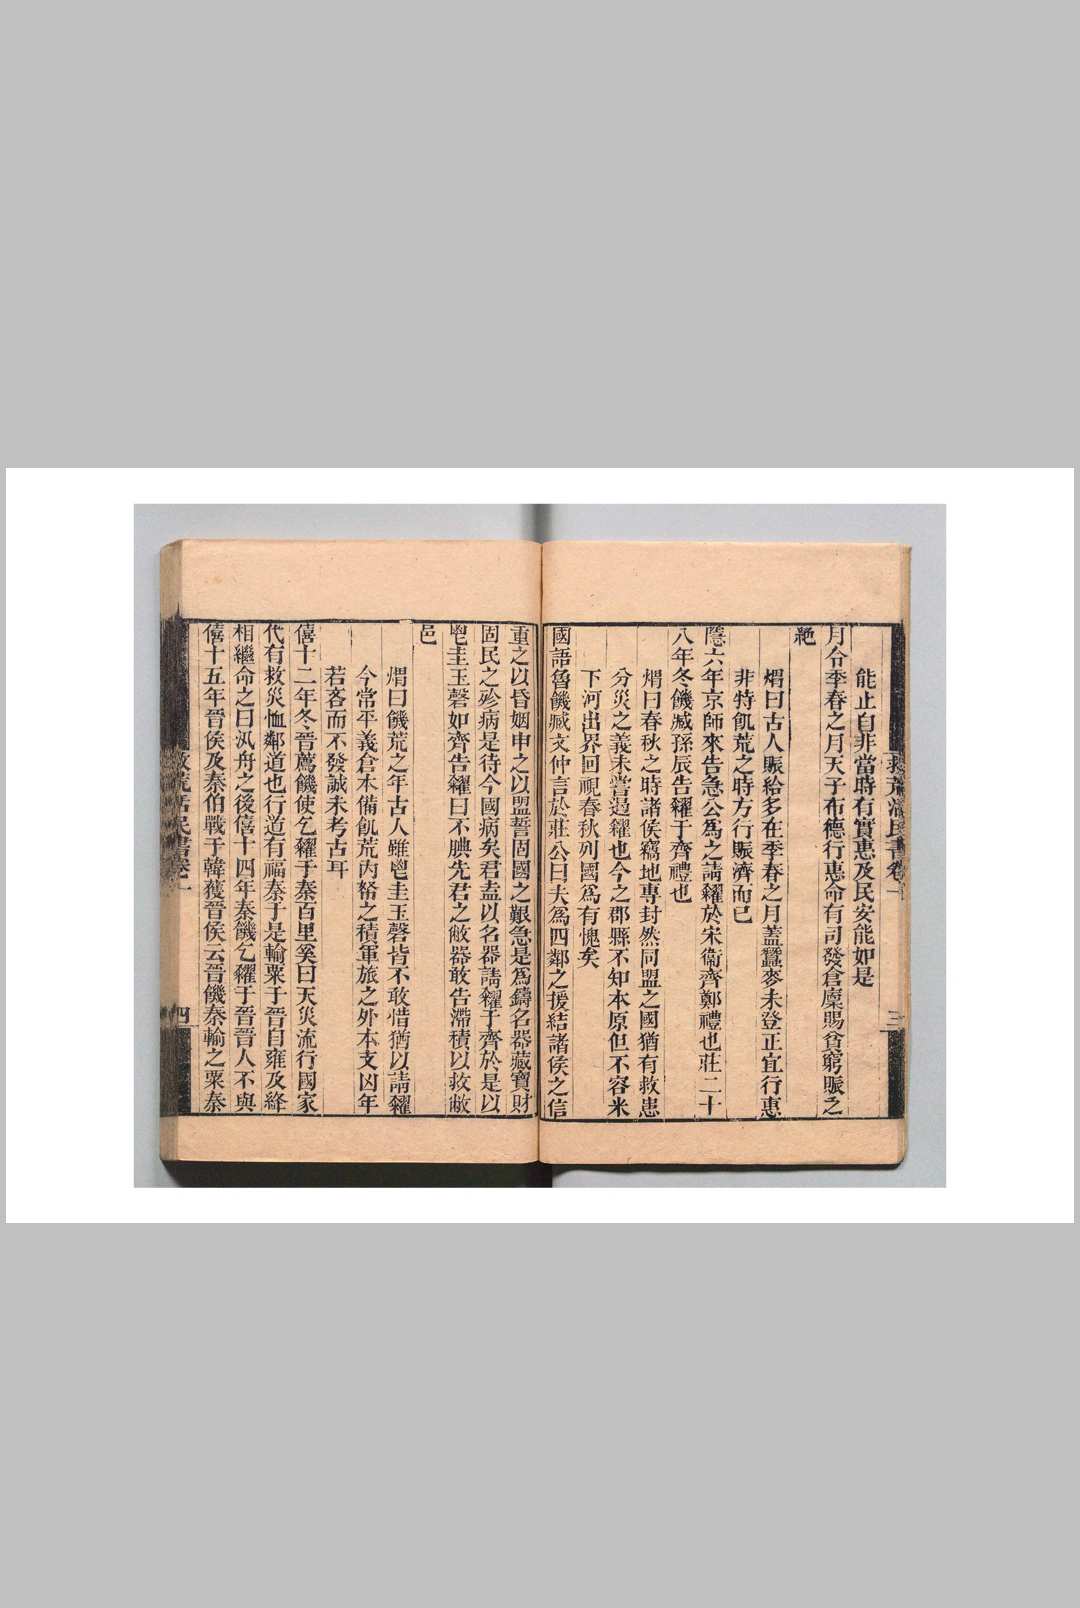 救荒活民書卷一
三
能止自非當時有實惠及民安能如是
月令季春之月天子布德行惠命有司發倉廩賜貧窮賑乏
絶
煟曰古人賑給多在季春之月蓋蠶麥未登正宜行惠
非特飢荒之時方行賑濟而已
隱六年京師來告急公爲之請糴於宋衞齊鄭禮也莊二十
八年冬饑臧孫辰告糴于齊禮也
煟曰春秋之時諸侯竊地專封然同盟之國猶有救患
分災之義未嘗遏糴也今之郡縣不知本原但不容米
下河出界回視春秋列國爲有愧矣
國語魯饑臧文仲言於莊公曰夫爲四鄰之援結諸侯之信
重之以昏姻申之以盟誓固國之艱急是爲鑄名器藏寶財
固民之殄病是待今國病矣君盍以名器請糴于齊於是以
鬯圭玉磬如齊告糴曰不腆先君之敝器敢告滯積以救敝
邑
煟曰饑荒之年古人雖鬯圭玉磬皆不敢惜猶以請糴
今常平義倉本備飢荒內帑之積軍旅之外本支凶年
若吝而不發誠未考古耳
僖十二年冬晉薦饑使乞糴于秦百里奚曰天災流行國家
代有救災恤鄰道也行道有福秦于是輸粟于晉自雍及絳
相繼命之曰汎舟之後僖十四年秦饑乞糴于晉晉人不與
僖十五年晉侯及秦伯戰于韓獲晉侯云晉饑秦輸之粟秦
救荒活民書卷一
四